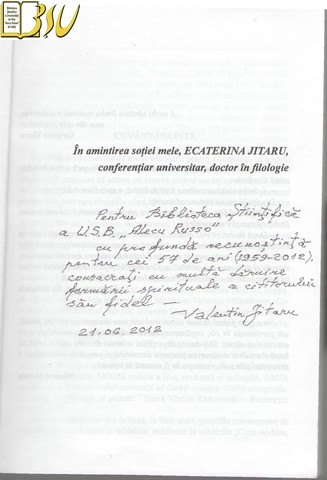 BȘU
În amintirea soției mele, ECATERINA JITARU,
conferențiar universitar, doctor în filologie
Pentru Biblioteca Științifică
a U.S.B. „Alecu Russo"
cu profundă recunoștință
pentru cei 57 de ani (1959-2012),
consacrați cu multă dăruire
formării spirituale a cititorului
său fidel —
Valentin Jitaru
21.06.2012